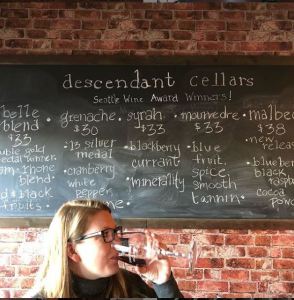 descendant cellars
Seattle Wine Award Winners!
belle
blend
$35
double gold
medal winner
rhone
blend
black
fruits.
grenache
$30
silver
medal
cranberry
white
pepper
syrah
$33
blackberry
currant
minerality
mourvedre
$33
blue
fruit,
spice,
smooth
tannin
malbec
$38
new
release
blueber
black
raspber
cocoa
powd